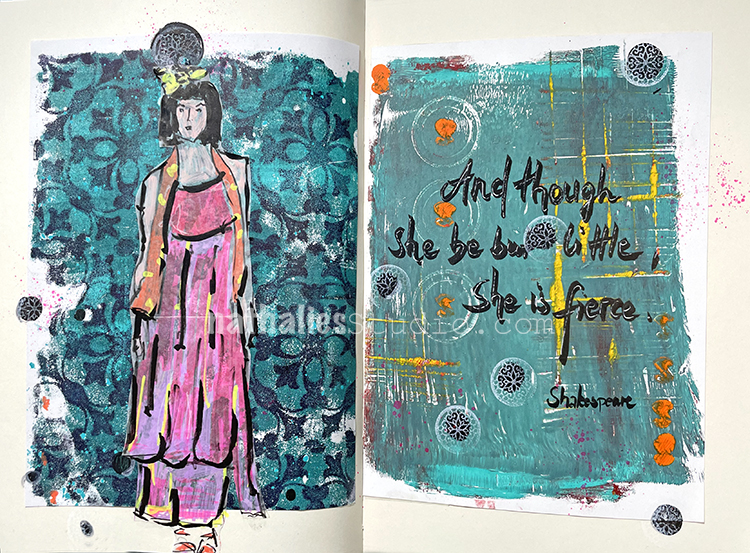 And though
she be but little,
She is fierce.
Shakespeare
nathaliesstudio.com